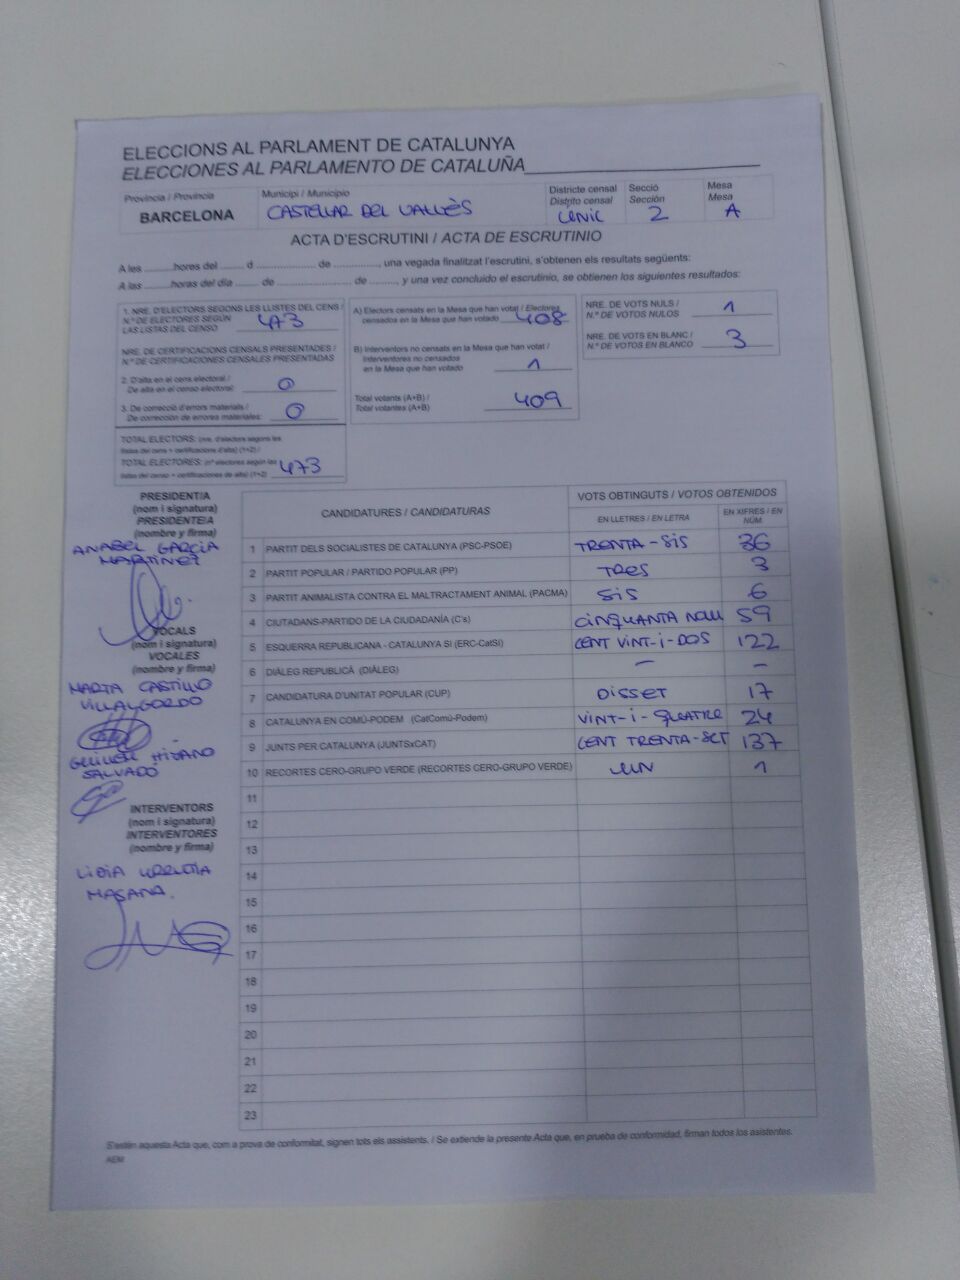 ELECCIONS AL PARLAMENT DE CATALUNYA
ELECCIONES AL PARLAMENTO DE CATALUÑA
Província / Provincia
BARCELONA
Municipi / Municipio
CASTELLAR DEL VALLÈS
Districte censal
Distrito censal
UNIC
Secció
Sección
2
Mesa
Mesa
A
ACTA D'ESCRUTINI / ACTA DE ESCRUTINIO
A les ..........hores del ........ d .................... de ..............., una vegada finalitzat l'escrutini, s'obtenen els resultats següents:
A las ..........horas del día ........ de ........................... de ........., y una vez concluido el escrutinio, se obtienen los siguientes resultados:
1. NRE. D'ELECTORS SEGONS LES LLISTES DEL CENS /
N.º DE ELECTORES SEGÚN
LAS LISTAS DEL CENSO
473
NRE. DE CERTIFICACIONS CENSALS PRESENTADES /
N.º DE CERTIFICACIONES CENSALES PRESENTADAS
2. D'alta en el cens electoral /
De alta en el censo electoral:
0
3. De correcció d'errors materials /
De corrección de errores materiales:
0
TOTAL ELECTORS: (nre. d'electors segons les
llistes del cens + certificacions d'alta) (1+2) /
TOTAL ELECTORES: (nº electores según las
listas del censo + certificaciones de alta) (1+2)
473
A) Electors censats en la Mesa que han votat / Electores
censados en la Mesa que han votado
408
B) Interventors no censats en la Mesa que han votat /
Interventores no censados
en la Mesa que han votado
1
Total votants (A+B) /
Total votantes (A+B)
409
NRE. DE VOTS NULS /
N.º DE VOTOS NULOS
1
NRE. DE VOTS EN BLANC /
N.º DE VOTOS EN BLANCO
3
PRESIDENT/A
(nom i signatura)
PRESIDENTE/A
(nombre y firma)
ANABEL GARCIA
MARTINEZ
VOCALS
(nom i signatura)
VOCALES
(nombre y firma)
MARTA CASTILLO
VILLALGORDO
SALVADÓ
INTERVENTORS
(nom i signatura)
INTERVENTORES
(nombre y firma)
LIDIA URRUTIA
MASANA.
CANDIDATURES / CANDIDATURAS
VOTS OBTINGUTS / VOTOS OBTENIDOS
EN LLETRES / EN LETRA
EN XIFRES / EN NÚM.
1 PARTIT DELS SOCIALISTES DE CATALUNYA (PSC-PSOE) TRENTA-SIS 36
2 PARTIT POPULAR / PARTIDO POPULAR (PP) TRES 3
3 PARTIT ANIMALISTA CONTRA EL MALTRACTAMENT ANIMAL (PACMA) SIS 6
4 CIUTADANS-PARTIDO DE LA CIUDADANÍA (C's) CINQUANTA NOU 59
5 ESQUERRA REPUBLICANA - CATALUNYA SI (ERC-CatSí) CENT VINT-I-DOS 122
6 DIÀLEG REPUBLICÀ (DIÀLEG) — —
7 CANDIDATURA D'UNITAT POPULAR (CUP) DISSET 17
8 CATALUNYA EN COMÚ-PODEM (CatComú-Podem) VINT-I-QUATRE 24
9 JUNTS PER CATALUNYA (JUNTSxCAT) CENT TRENTA-SET 137
10 RECORTES CERO-GRUPO VERDE (RECORTES CERO-GRUPO VERDE) UN 1
11
12
13
14
15
16
17
18
19
20
21
22
23
S'estén aquesta Acta que, com a prova de conformitat, signen tots els assistents. / Se extiende la presente Acta que, en prueba de conformidad, firman todos los asistentes.
AEM